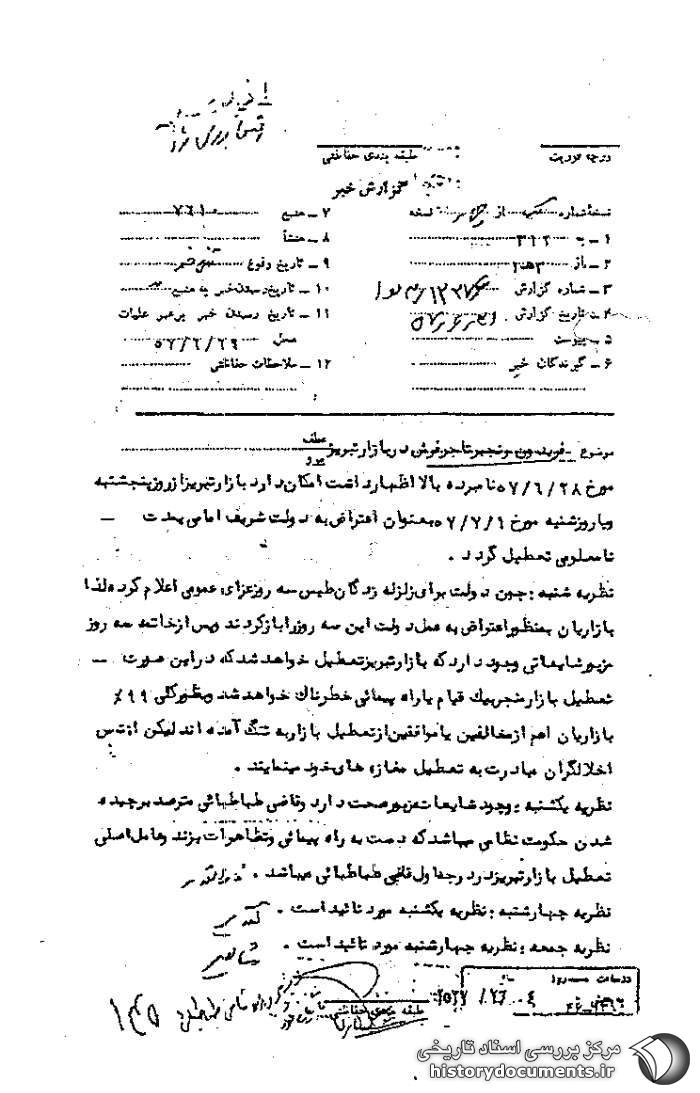 درجه فوریت
طبقه بندی حفاظتی
گزارش خبر
نسخه شماره از نسخه
۱ ـ به ۳۱۲
۲ ـ از
۳ ـ شماره گزارش
۴ ـ تاریخ گزارش
۵ ـ پیوست
۶ ـ گیرندگان خبر
۷ ـ منبع ۷۶۱۰
۸ ـ منشأ
۹ ـ تاریخ وقوع
۱۰ ـ تاریخ رسیدن خبر به منبع
۱۱ ـ تاریخ رسیدن خبر برهبر عملیات
محل ۵۷/۶/۲۹
۱۲ ـ ملاحظات حفاظتی
موضوع ـ فریدون رنجبر تاجر فرش در بازار تبریز
عطف
پیرو
مورخ ۵۷/۶/۲۸ نامبرده بالا اظهار داشت امکان دارد بازار تبریز از روز پنجشنبه
ویا روز شنبه مورخ ۵۷/۷/۱ بعنوان اعتراض به دولت شریف امامی بمدت ـ
نامعلومی تعطیل گردد .
نظریه شنبه : چون دولت برای زلزله زدگان طبس سه روز عزای عمومی اعلام کرده لذا
بازاریان بمنظور اعتراض به عمل دولت این سه روز را باز کردند وپس از خاتمه سه روز
مزبور شایعاتی وجود دارد که بازار تبریز تعطیل خواهد شد که در این صورت ـ
تعطیل بازار منجر بیک قیام یا راه پیمائی خطرناک خواهد شد وبطور کلی ۹۹٪
بازاریان اعم از مخالفین یا موافقین از تعطیل بازار به تنگ آمده اند لیکن از ترس
اخلالگران مبادرت به تعطیل مغازه های خود مینمایند .
نظریه یکشنبه : وجود شایعات مزبور صحت دارد وقاضی طباطبائی مترصد برچیده
شدن حکومت نظامی میباشد که دست به راه پیمائی وتظاهرات بزند وعامل اصلی
تعطیل بازار تبریز در درجه اول قاضی طباطبائی میباشد .
نظریه چهارشنبه : نظریه یکشنبه مورد تائید است .
نظریه جمعه : نظریه چهارشنبه مورد تائید است .
طبقه بندی حفاظتی
مرکز بررسی اسناد تاریخی
historydocuments.ir